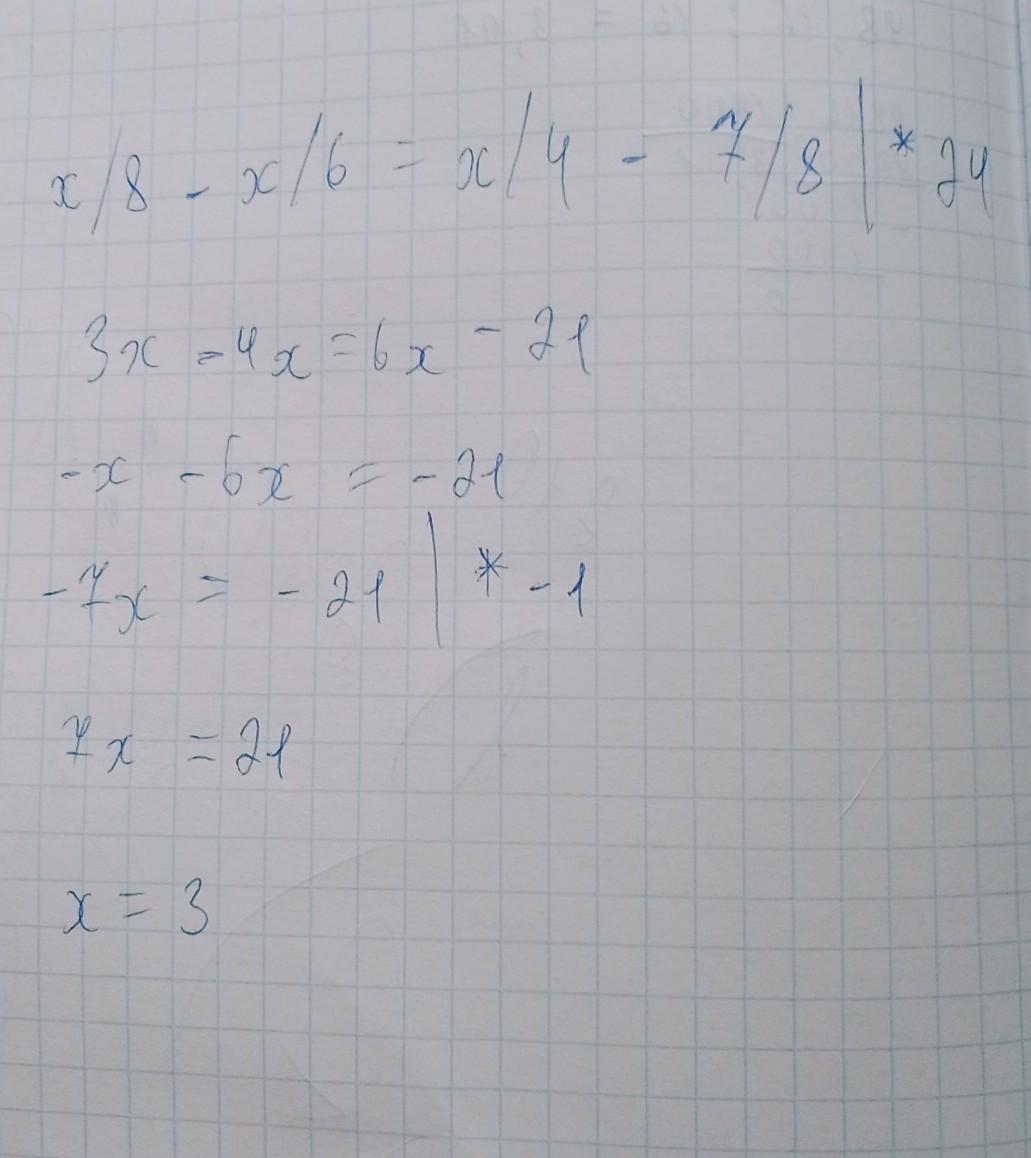 x/8 - x/6 = x/4 - 7/8 | * 24
3x - 4x = 6x - 21
-x - 6x = -21
-7x = -21 | * -1
7x = 21
x = 3